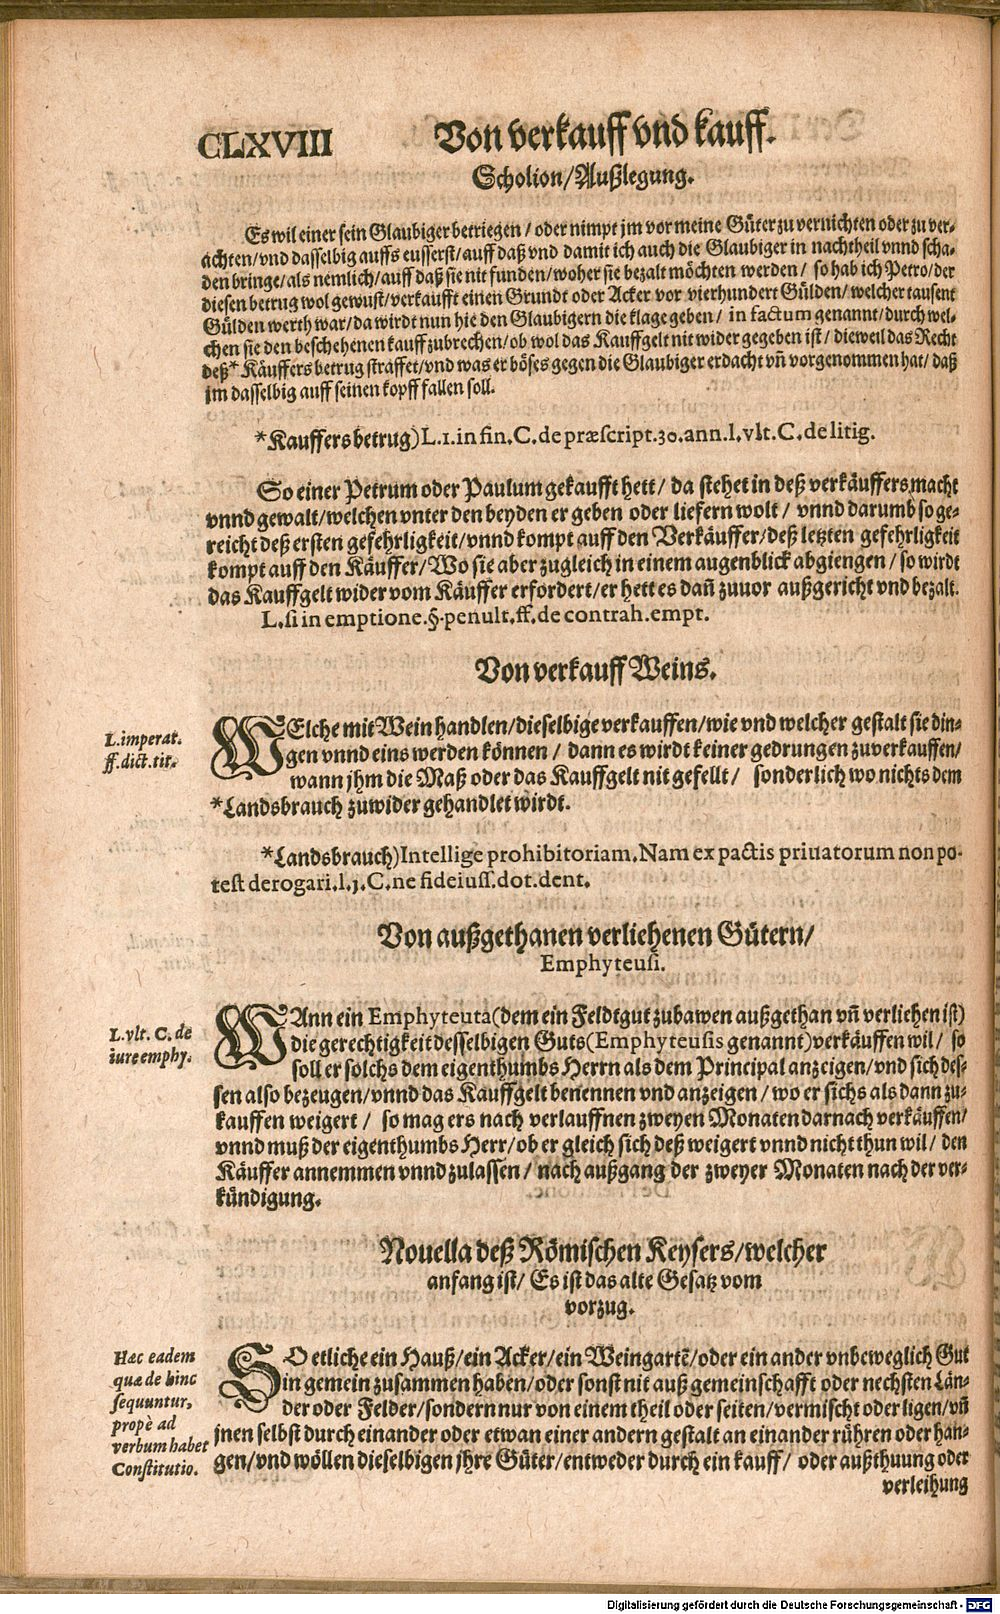 CLXVIII
Von verkauff vnd kauff.
Scholion/Außlegung.
Es wil einer sein Glaubiger betriegen/ oder nimpt jm vor meine Güter zu vernichten oder zu ver-
ächten/vnd dasselbig auffs eusserst/auff daß vnd damit ich auch die Glaubiger in nachtheil vnnd scha-
den bringe/als nemlich/auff daß sie nit funden/woher sie bezalt möchten werden/ so hab ich Petro/der
diesen betrug wol gewust/verkaufft einen Grundt oder Acker vor vierhundert Gülden/welcher tausent
Gülden werth war/da wirdt nun hie den Glaubigern die klage geben/ in factum genannt/durch wel-
chen sie den beschehenen kauff zubrechen/ob wol das Kauffgelt nit wider gegeben ist/dieweil das Recht
deß* Käuffers betrug straffet/vnd was er böses gegen die Glaubiger erdacht vñ vorgenommen hat/daß
jm dasselbig auff seinen kopff fallen soll.
*Kauffers betrug) L.1. in fin. C. de præscript. 30. ann. l. vlt. C. de litig.
So einer Petrum oder Paulum gekaufft hett/ da stehet in deß verkäuffers macht
vnnd gewalt/welchen vnter den beyden er geben oder liefern wolt/ vnnd darumb so ge-
reicht deß ersten gefehrligkeit/vnnd kompt auff den Verkäuffer/deß letzten gefehrligkeit
kompt auff den Käuffer/Wo sie aber zugleich in einem augenblick abgiengen/so wirdt
das Kauffgelt wider vom Käuffer erfordert/er hett es dañ zuuor außgericht vnd bezalt.
L. si in emptione. §. penult. ff. de contrah. empt.
Von verkauff Weins.
L. imperat.
ff. dict. tit.
WElche mit Wein handlen/dieselbige verkauffen/wie vnd welcher gestalt sie din-
gen vnnd eins werden können/ dann es wirdt keiner gedrungen zuverkauffen/
wann jhm die Maß oder das Kauffgelt nit gefellt/ sonderlich wo nichts dem
*Landsbrauch zuwider gehandlet wirdt.
*Landsbrauch) Intellige prohibitoriam. Nam ex pactis priuatorum non po-
test derogari. l. j. C. ne fideiuss. dot. dent.
Von außgethanen verliehenen Gütern/
Emphyteusi.
L. vlt. C. de
iure emphy.
WAnn ein Emphyteuta (dem ein Feldtgut zubawen außgethan vñ verliehen ist)
die gerechtigkeit desselbigen Guts (Emphyteusis genannt) verkäuffen wil/ so
soll er solchs dem eigenthumbs Herrn als dem Principal anzeigen/vnd sich des-
sen also bezeugen/vnnd das Kauffgelt benennen vnd anzeigen/wo er sichs als dann zu-
kauffen weigert/ so mag ers nach verlauffnen zweyen Monaten darnach verkäuffen/
vnnd muß der eigenthumbs Herr/ob er gleich sich deß weigert vnnd nicht thun wil/ den
Käuffer annemmen vnnd zulassen/ nach außgang der zweyer Monaten nach der ver-
kündigung.
Nouella deß Römischen Keysers/welcher
anfang ist/ Es ist das alte Gesatz vom
vorzug.
Hæc eadem
quæ de hinc
sequuntur,
propè ad
verbum habet
Constitutio.
SO etliche ein Hauß/ein Acker/ein Weingartē/oder ein ander vnbeweglich Gut
in gemein zusammen haben/oder sonst nit auß gemeinschafft oder nechsten Län-
der oder Felder/sondern nur von einem theil oder seiten/vermischt oder ligen/vñ
jnen selbst durch einander oder etwan einer andern gestalt an einander rühren oder han-
gen/vnd wöllen dieselbigen jhre Güter/entweder durch ein kauff/ oder außthuung oder
verleihung
Digitalisierung gefördert durch die Deutsche Forschungsgemeinschaft - DFG